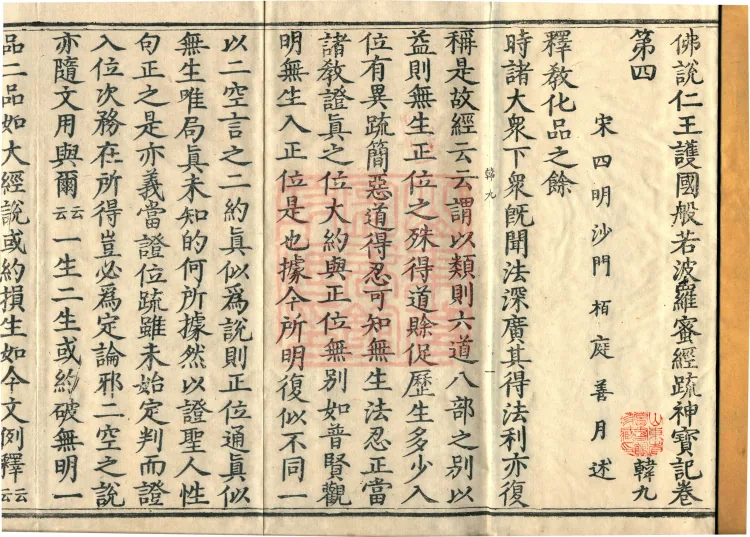 佛說仁王護國般若波羅蜜經疏神寶記卷
第四 韓九
宋四明沙門栢庭善月述
釋教化品之餘
時諸大衆下衆旣聞法深廣其得法利亦復
韓九
稱是故經云云謂以類則六道八部之別以
益則無生正位之殊得道賒促歷生多少入
位有異疏簡惡道得忍可知無生法忍正當
諸教證眞之位大約與正位無别如普賢觀
明無生入正位是也據今所明復似不同一
以二空言之二約眞似爲說則正位通眞似
無生唯局眞未知的何所據然以證聖人性
句正之是亦義當證位疏雖未始定判而證
入位次務在所得豈必爲定論邪二空之說
亦隨文用與爾云云一生二生或約破無明一
品二品如大經說或約損生如今文例釋云云